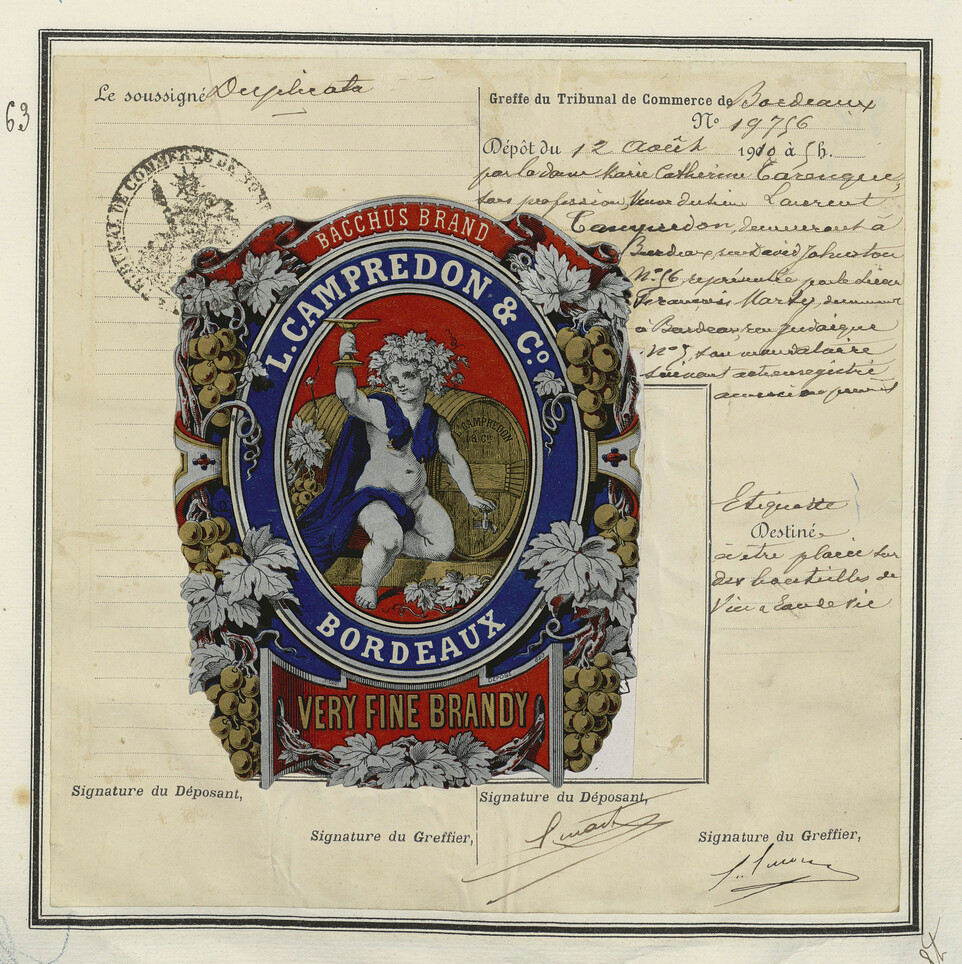 63
Le soussigné Duplicata
TRIBUNAL DE COMMERCE DE
Greffe du Tribunal de Commerce de Bordeaux
No 19756
Dépôt du 12 Août 1910 à 5 h.
par la dame Marie Catherine Tarenque,
sans profession, Veuve du sieur Laurent
Campredon, demeurant à
Bordeaux, rue David Johnston
No 56, représentée par le sieur
François Marty, demeurant
à Bordeaux rue Judaïque
No 5, son mandataire
suivant acte enregistré
Etiquette
Destinée
à être placée sur
des bouteilles de
Vin & Eau de vie
BACCHUS BRAND
L. CAMPREDON & Co.
L. CAMPREDON
& Co
BORDEAUX
DÉPOSÉ
VERY FINE BRANDY
Signature du Déposant,
Signature du Greffier,
Signature du Déposant,
Signature du Greffier,